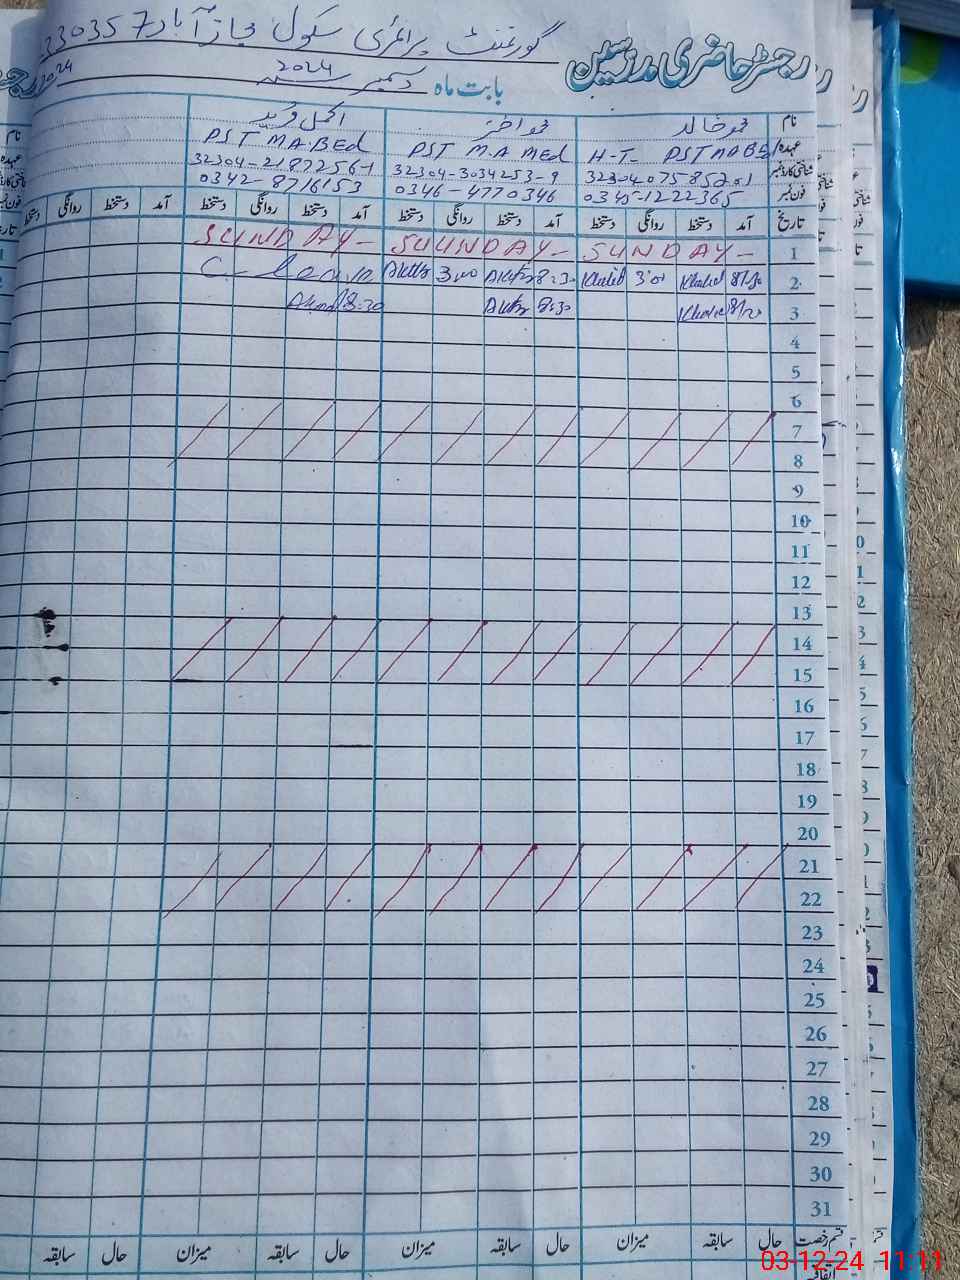 رجسٹر حاضری مدرسین
گورنمنٹ پرائمری سکول حجاز آباد 330357
بابت ماہ دسمبر 2024
نام محمد خالد محمد اختر اکمل فرید
عہدہ H-T- PST MA BEd PST M.A MEd PST M A BEd
شناختی کارڈ نمبر 32304-3034253-9 32304-2187256-1
فون نمبر 0345-1222365 0346-4770346 0342-8716153
تاریخ آمد دستخط روانگی دستخط آمد دستخط روانگی دستخط آمد دستخط روانگی دستخط آمد دستخط روانگی دستخط
1 SUNDAY - SUNDAY - SUNDAY -
2 Khalid Khalid 8:30 Akhtr 3:00 Akhtr C-leave
3 Khalid Akhtr 8:30 8:30
4
5
6
7
8
9
10
11
12
13
14
15
16
17
18
19
20
21
22
23
24
25
26
27
28
29
30
31
قسم رخصت حال سابقہ میزان حال سابقہ میزان حال سابقہ میزان حال سابقہ
اتفاقیہ
03-12-24 11:11